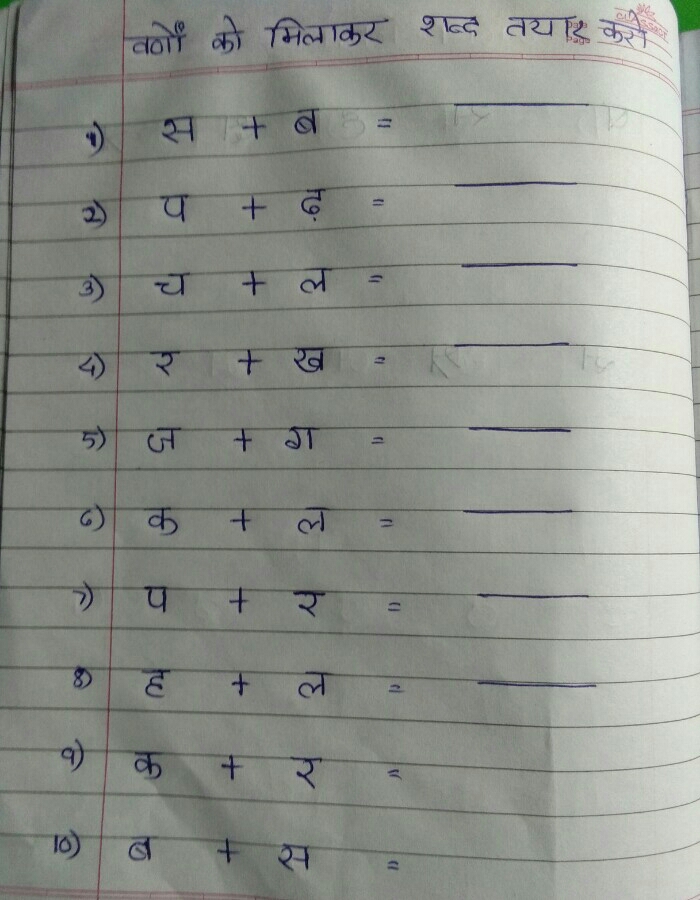 वर्णों को मिलाकर शब्द तयार करो
1) स + ब =
2) प + ढ़ =
3) च + ल =
4) र + ख =
5) ज + ग =
6) क + ल =
7) प + र =
8) ह + ल =
9) क + र =
10) ब + स =